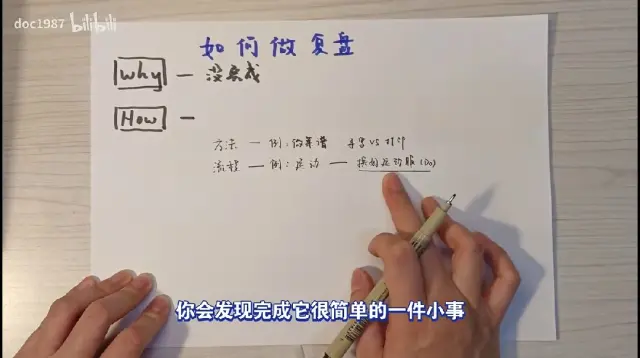 doc1987 bilibili
如何做复盘
Why — 没完成
How —
方法 — 例:做菜谱 手写VS打印
流程 — 例:运动 — 换到运动服(Do)
你会发现完成它很简单的一件小事